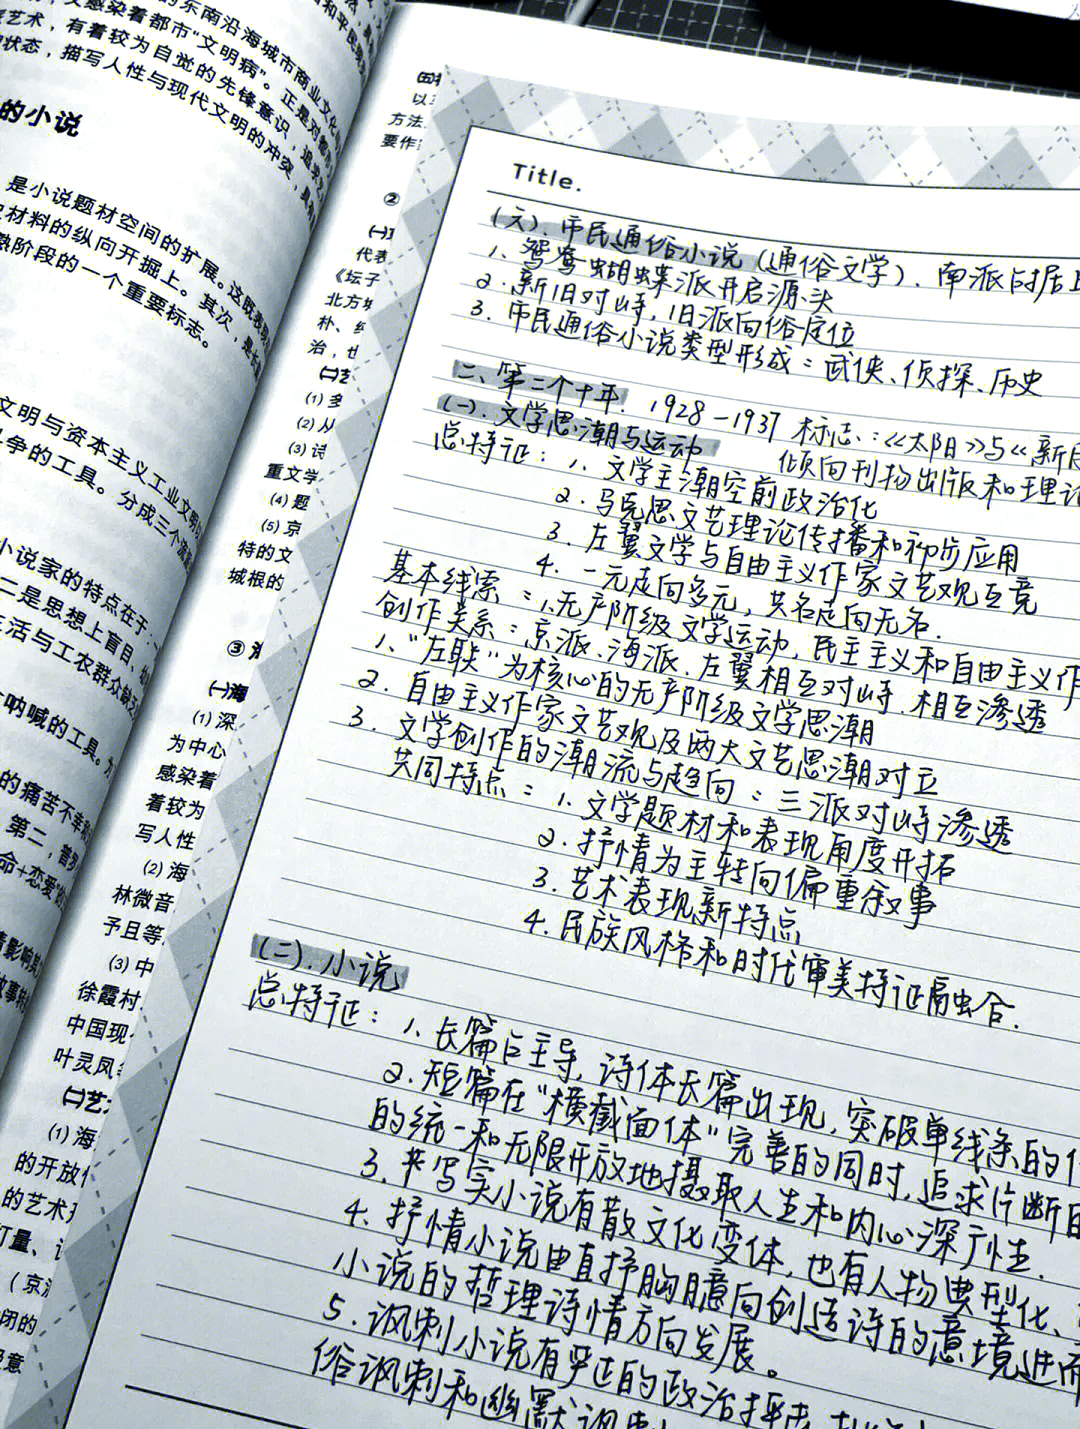 的东南沿海城市商业文化
又感染着都市“文明病”。正是对都
艺术，有着较为自觉的先锋意识，追求
状态，描写人性与现代文明的冲突，具有
的小说
是小说题材空间的扩展。这既表现
材料的纵向开掘上。其次，是长
熟阶段的一个重要标志。
文明与资本主义工业文明的
斗争的工具。分成三个流派
小说家的特点在于
二是思想上盲目、
生活与工农群众
呐喊的工具。为
的痛苦不幸
第二，普罗
命+恋爱”的
情影响其
故事转
以
方法
要作
②
代表
《坛子
北方
朴、
治，也
㈡艺
(1) 多
(2) 从
(3) 诗
重文学
(4) 题
(5) 京
特的文
城根的
③ 海
㈠海
(1) 深
为中心
感染着
着较为
写人性
(2) 海
林微音
予且等
(3) 中
徐霞村
中国现
叶灵凤
㈡艺
(1) 海
的开放性
的艺术
打量、
（京派
闭的
意
Title.
(六). 市民通俗小说 (通俗文学). 南派时居上
1. 鸳鸯蝴蝶派开启源头
2. 新旧对峙, 旧派向俗定位
3. 市民通俗小说类型形成：武侠、侦探、历史
二、第二个十年. 1928-1937 标志：《太阳》与《新月
倾向刊物出版和理论
(一). 文学思潮与运动
总特征：1. 文学主潮空前政治化
2. 马克思文艺理论传播和初步应用
3. 左翼文学与自由主义作家文艺观互竞
4. 一元走向多元, 共名走向无名.
基本线索：1.无产阶级文学运动, 民主主义和自由主义作
创作关系：京派、海派、左翼相互对峙, 相互渗透
1. “左联”为核心的无产阶级文学思潮
2. 自由主义作家文艺观及两大文艺思潮对立
3. 文学创作的潮流与趋向：三派对峙渗透
共同特点：1. 文学题材和表现角度开拓
2. 抒情为主转向偏重叙事
3. 艺术表现新特点
4. 民族风格和时代审美特征融合.
(二). 小说
总特征：1. 长篇占主导, 诗体长篇出现, 突破单线条的
2. 短篇在“横截面体”完善的同时, 追求片断的
的统一和无限开放地摄取人生和内心深广性.
3. 半写实小说有散文化变体, 也有人物典型化、
4. 抒情小说由直抒胸臆向创造诗的意境进而
小说的哲理诗情方向发展。
5. 讽刺小说有严正的政治抨击,
俗讽刺和幽默讽刺